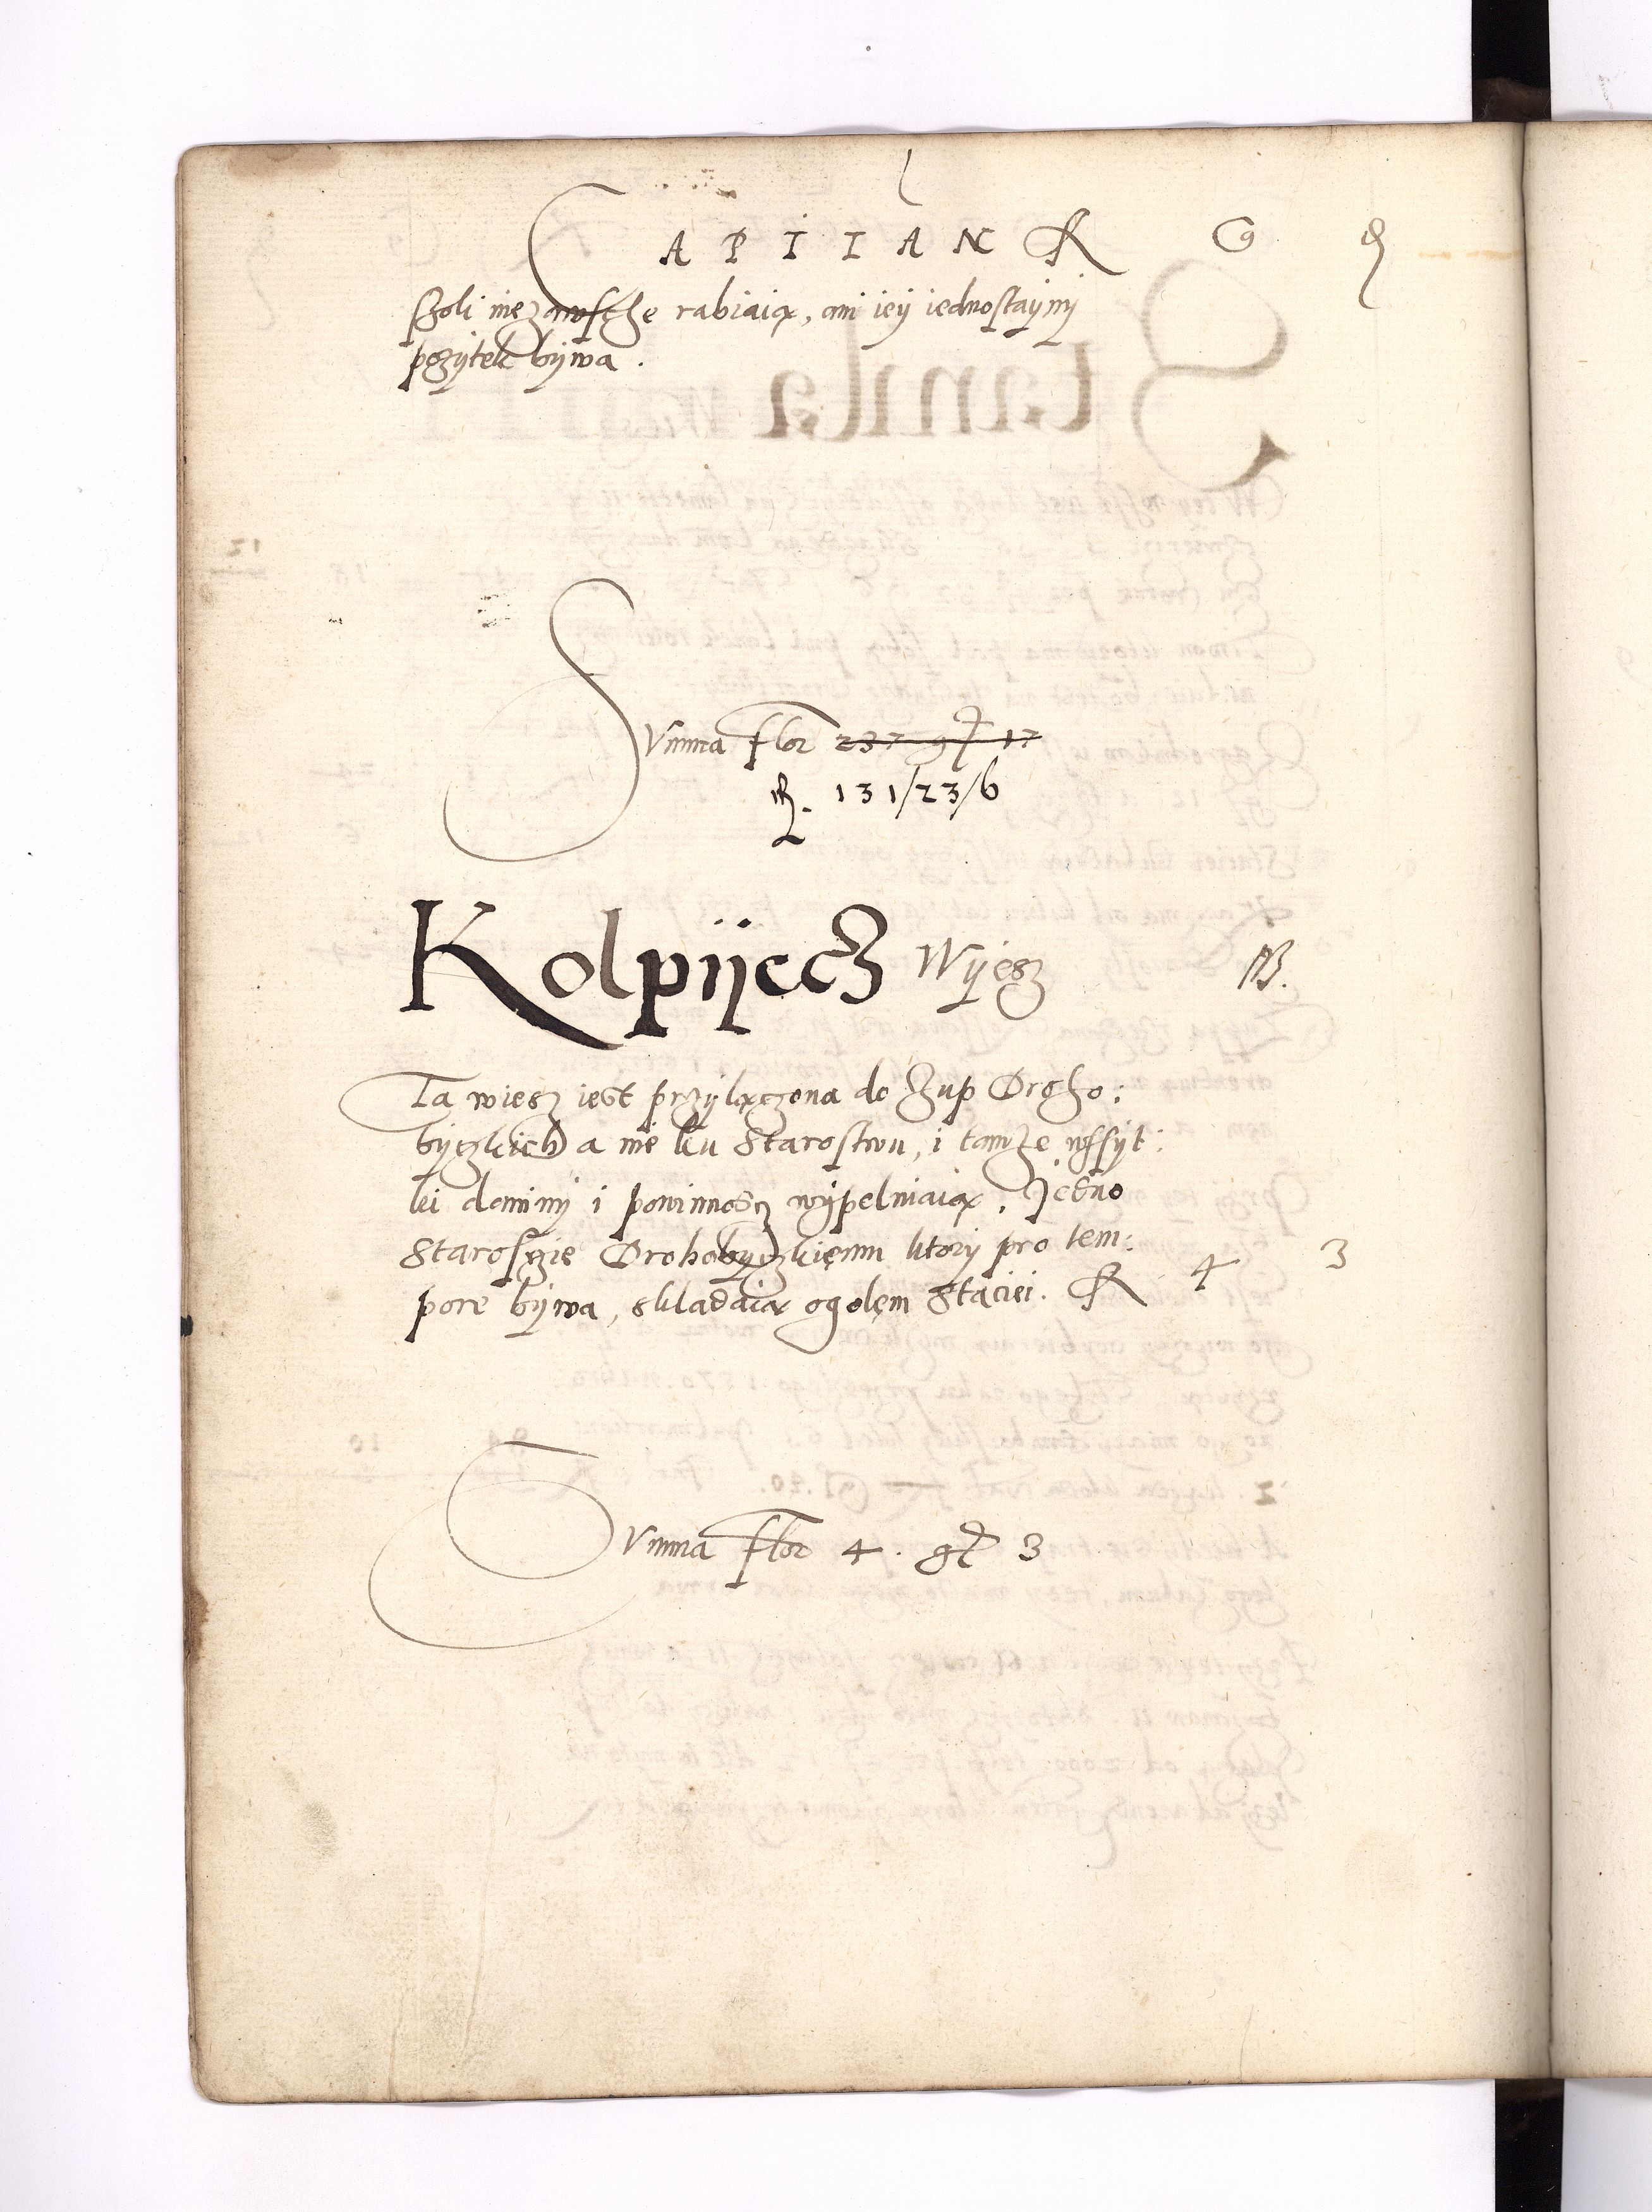 CAPITANR G g
Szoli nie zawsche rabiaią, ani iey iednostayny
pozytek bywa.
Summa Flor 237 gr 17
R. 131/23/6
Kolpijecz Wyesz NB.
Ta wiesz iest przylączona do Zup Droho:
byczkich a nie ku Starostwu, i tamze wssyt:
ki daniny i powinnosczi wypelniaią, Jedno
Starosczie Drohobyczkięmu ktory pro tem:
pore bywa, skladaią ogolęm Stąciei. R 4 3
Summa Flor 4. gr 3